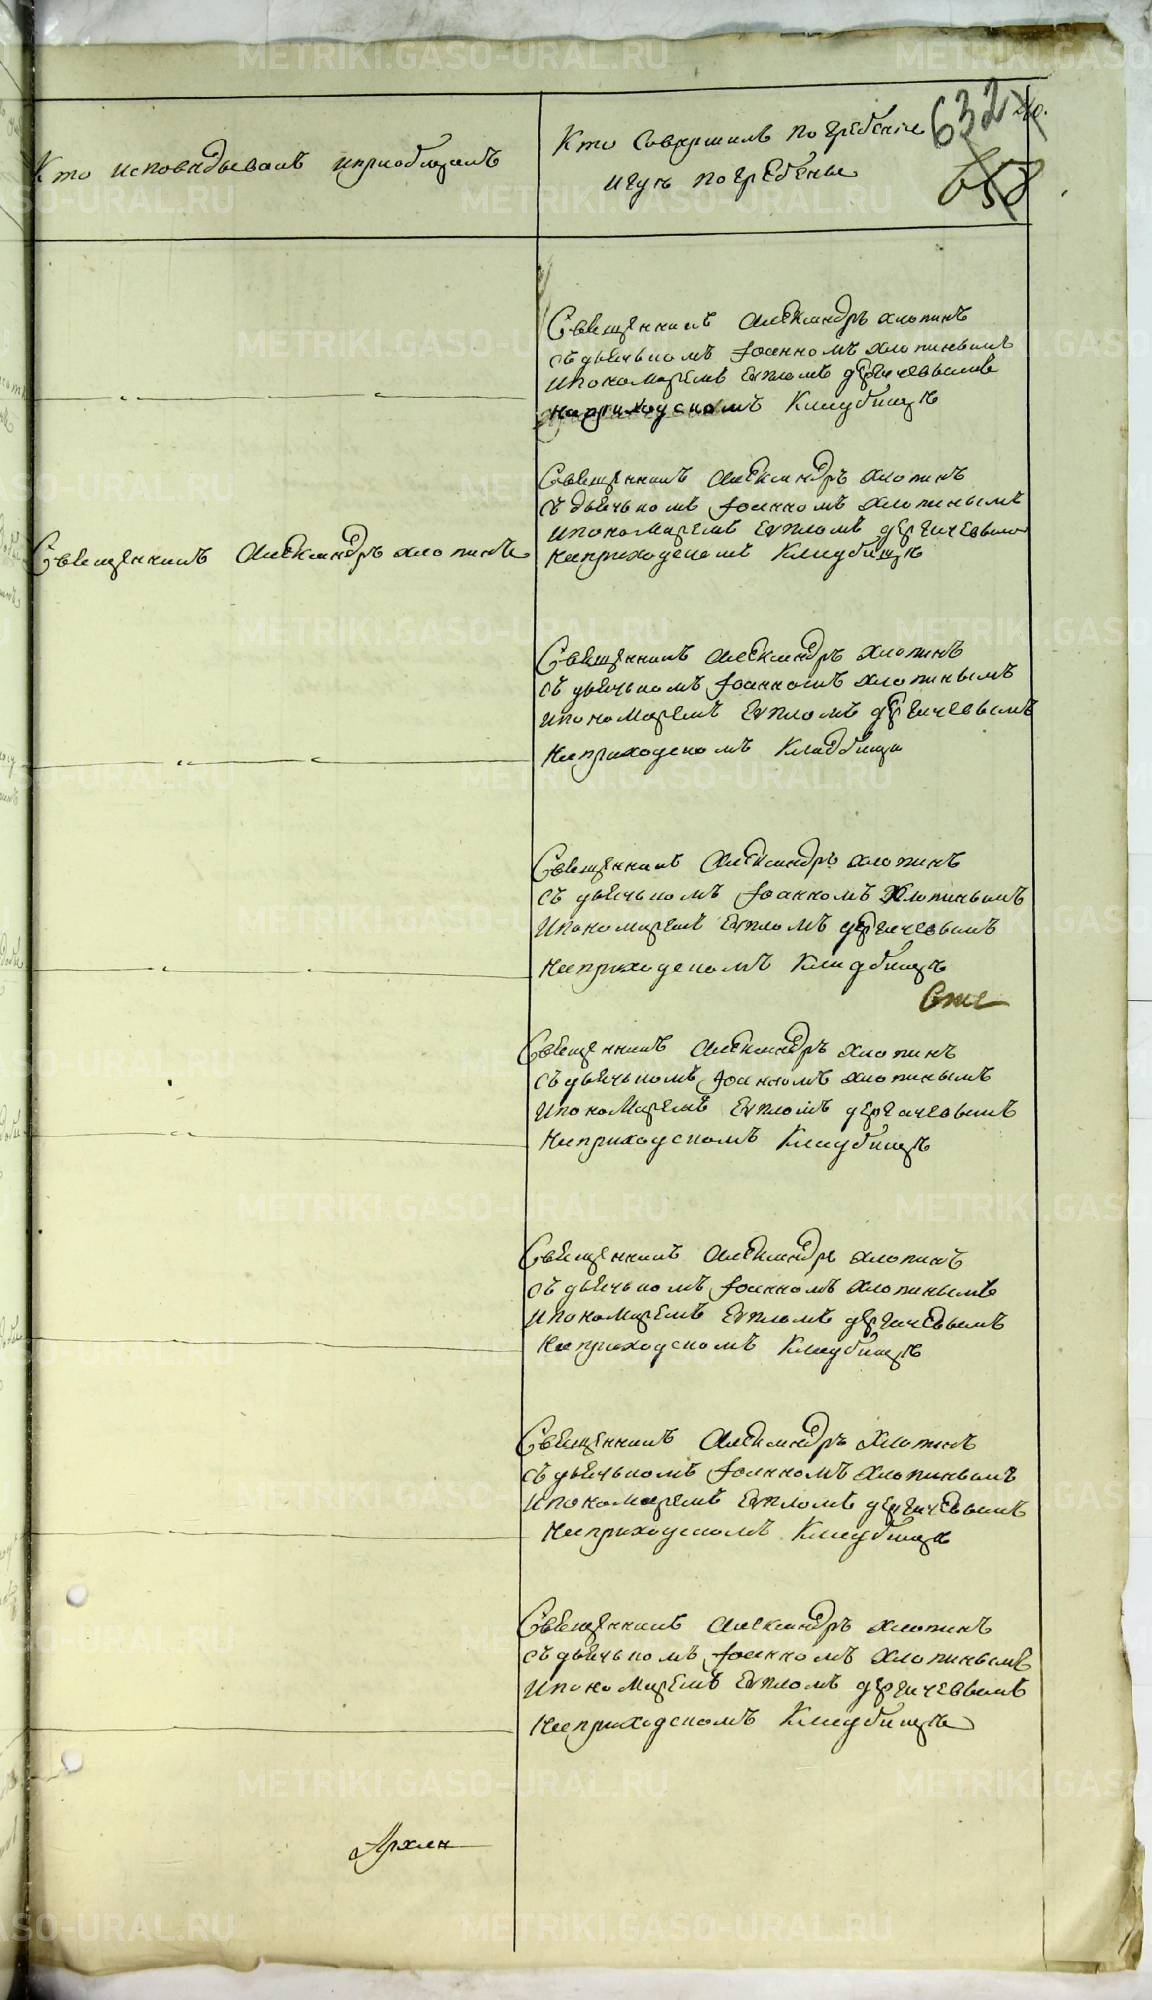 Кто исповѣдывалъ и приобщалъ
Кто Совершилъ погребение
и гдѣ погребены
632
658
Священникъ Александръ Хлопинъ
съ дьячькомъ Іоанномъ Хлопинымъ
и пономаремъ Евпломъ Дергачевымъ
на приходскомъ Кладбищѣ
Священникъ Александръ Хлопинъ
съ дьячькомъ Іоанномъ Хлопинымъ
и пономаремъ Евпломъ Дергачевымъ
на приходскомъ Кладбищѣ
Священникъ Александръ Хлопинъ
Священникъ Александръ Хлопинъ
съ дьячькомъ Іоанномъ Хлопинымъ
и пономаремъ Евпломъ Дергачевымъ
на приходскомъ Кладбищи
Священникъ Александръ Хлопинъ
съ дьячькомъ Іоанномъ Хлопинымъ
и пономаремъ Евпломъ Дергачевымъ
на приходскомъ Кладбищѣ
Священникъ Александръ Хлопинъ
съ дьячькомъ Іоанномъ Хлопинымъ
и пономаремъ Евпломъ Дергачевымъ
на приходскомъ Кладбищѣ
Священникъ Александръ Хлопинъ
съ дьячькомъ Іоанномъ Хлопинымъ
и пономаремъ Евпломъ Дергачевымъ
на приходскомъ Кладбищѣ
Священникъ Александръ Хлопинъ
съ дьячькомъ Іоанномъ Хлопинымъ
и пономаремъ Евпломъ Дергачевымъ
на приходскомъ Кладбищѣ
Священникъ Александръ Хлопинъ
съ дьячькомъ Іоанномъ Хлопинымъ
и пономаремъ Евпломъ Дергачевымъ
на приходскомъ Кладбищѣ
METRIKI.GASO-URAL.RU